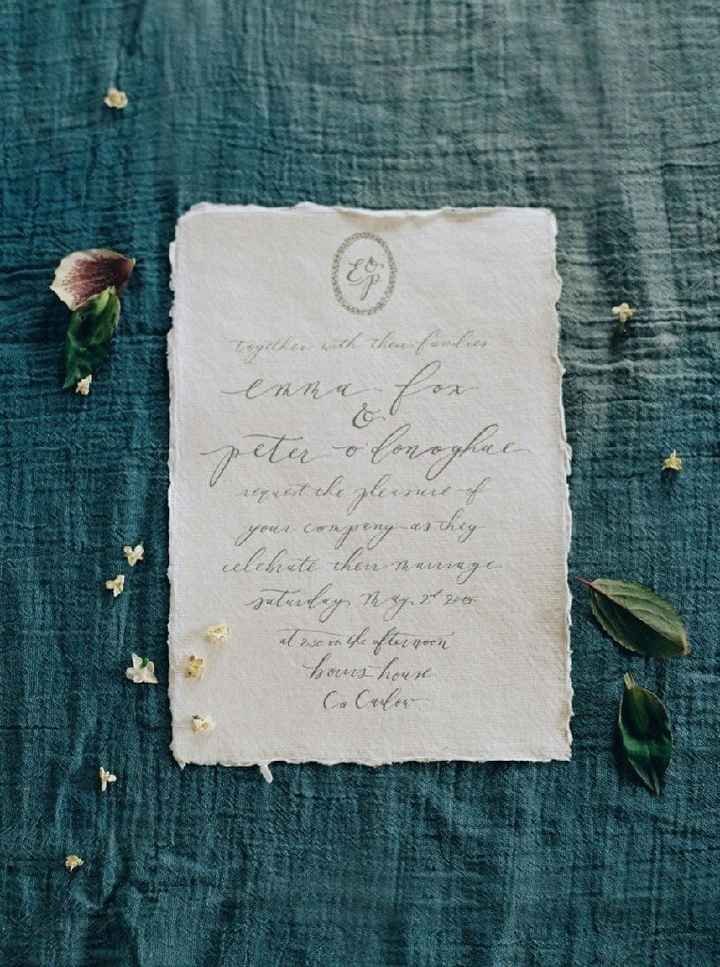 E & P
together with their families
emma fox
&
peter o'donoghue
request the pleasure of
your company as they
celebrate their marriage
saturday may 2nd
at in the afternoon
house
Co Carlow